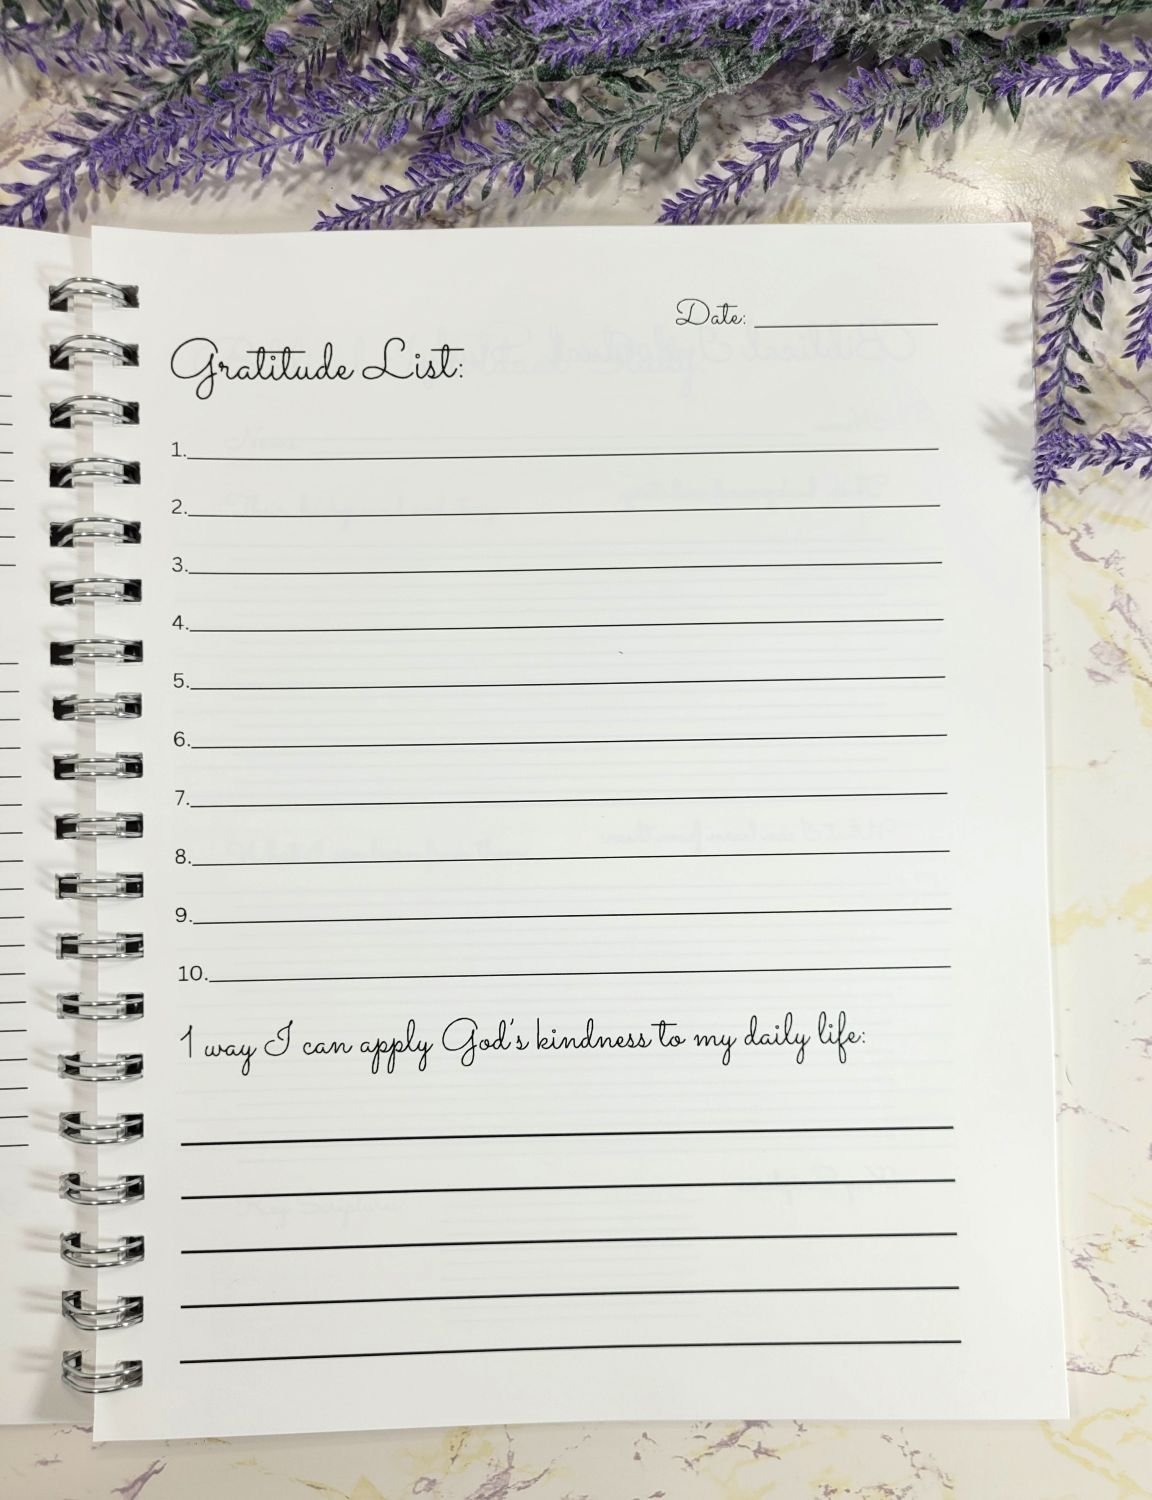 Date:
Gratitude List:
1.
2.
3.
4.
5.
6.
7.
8.
9.
10.
1 way I can apply God's kindness to my daily life: